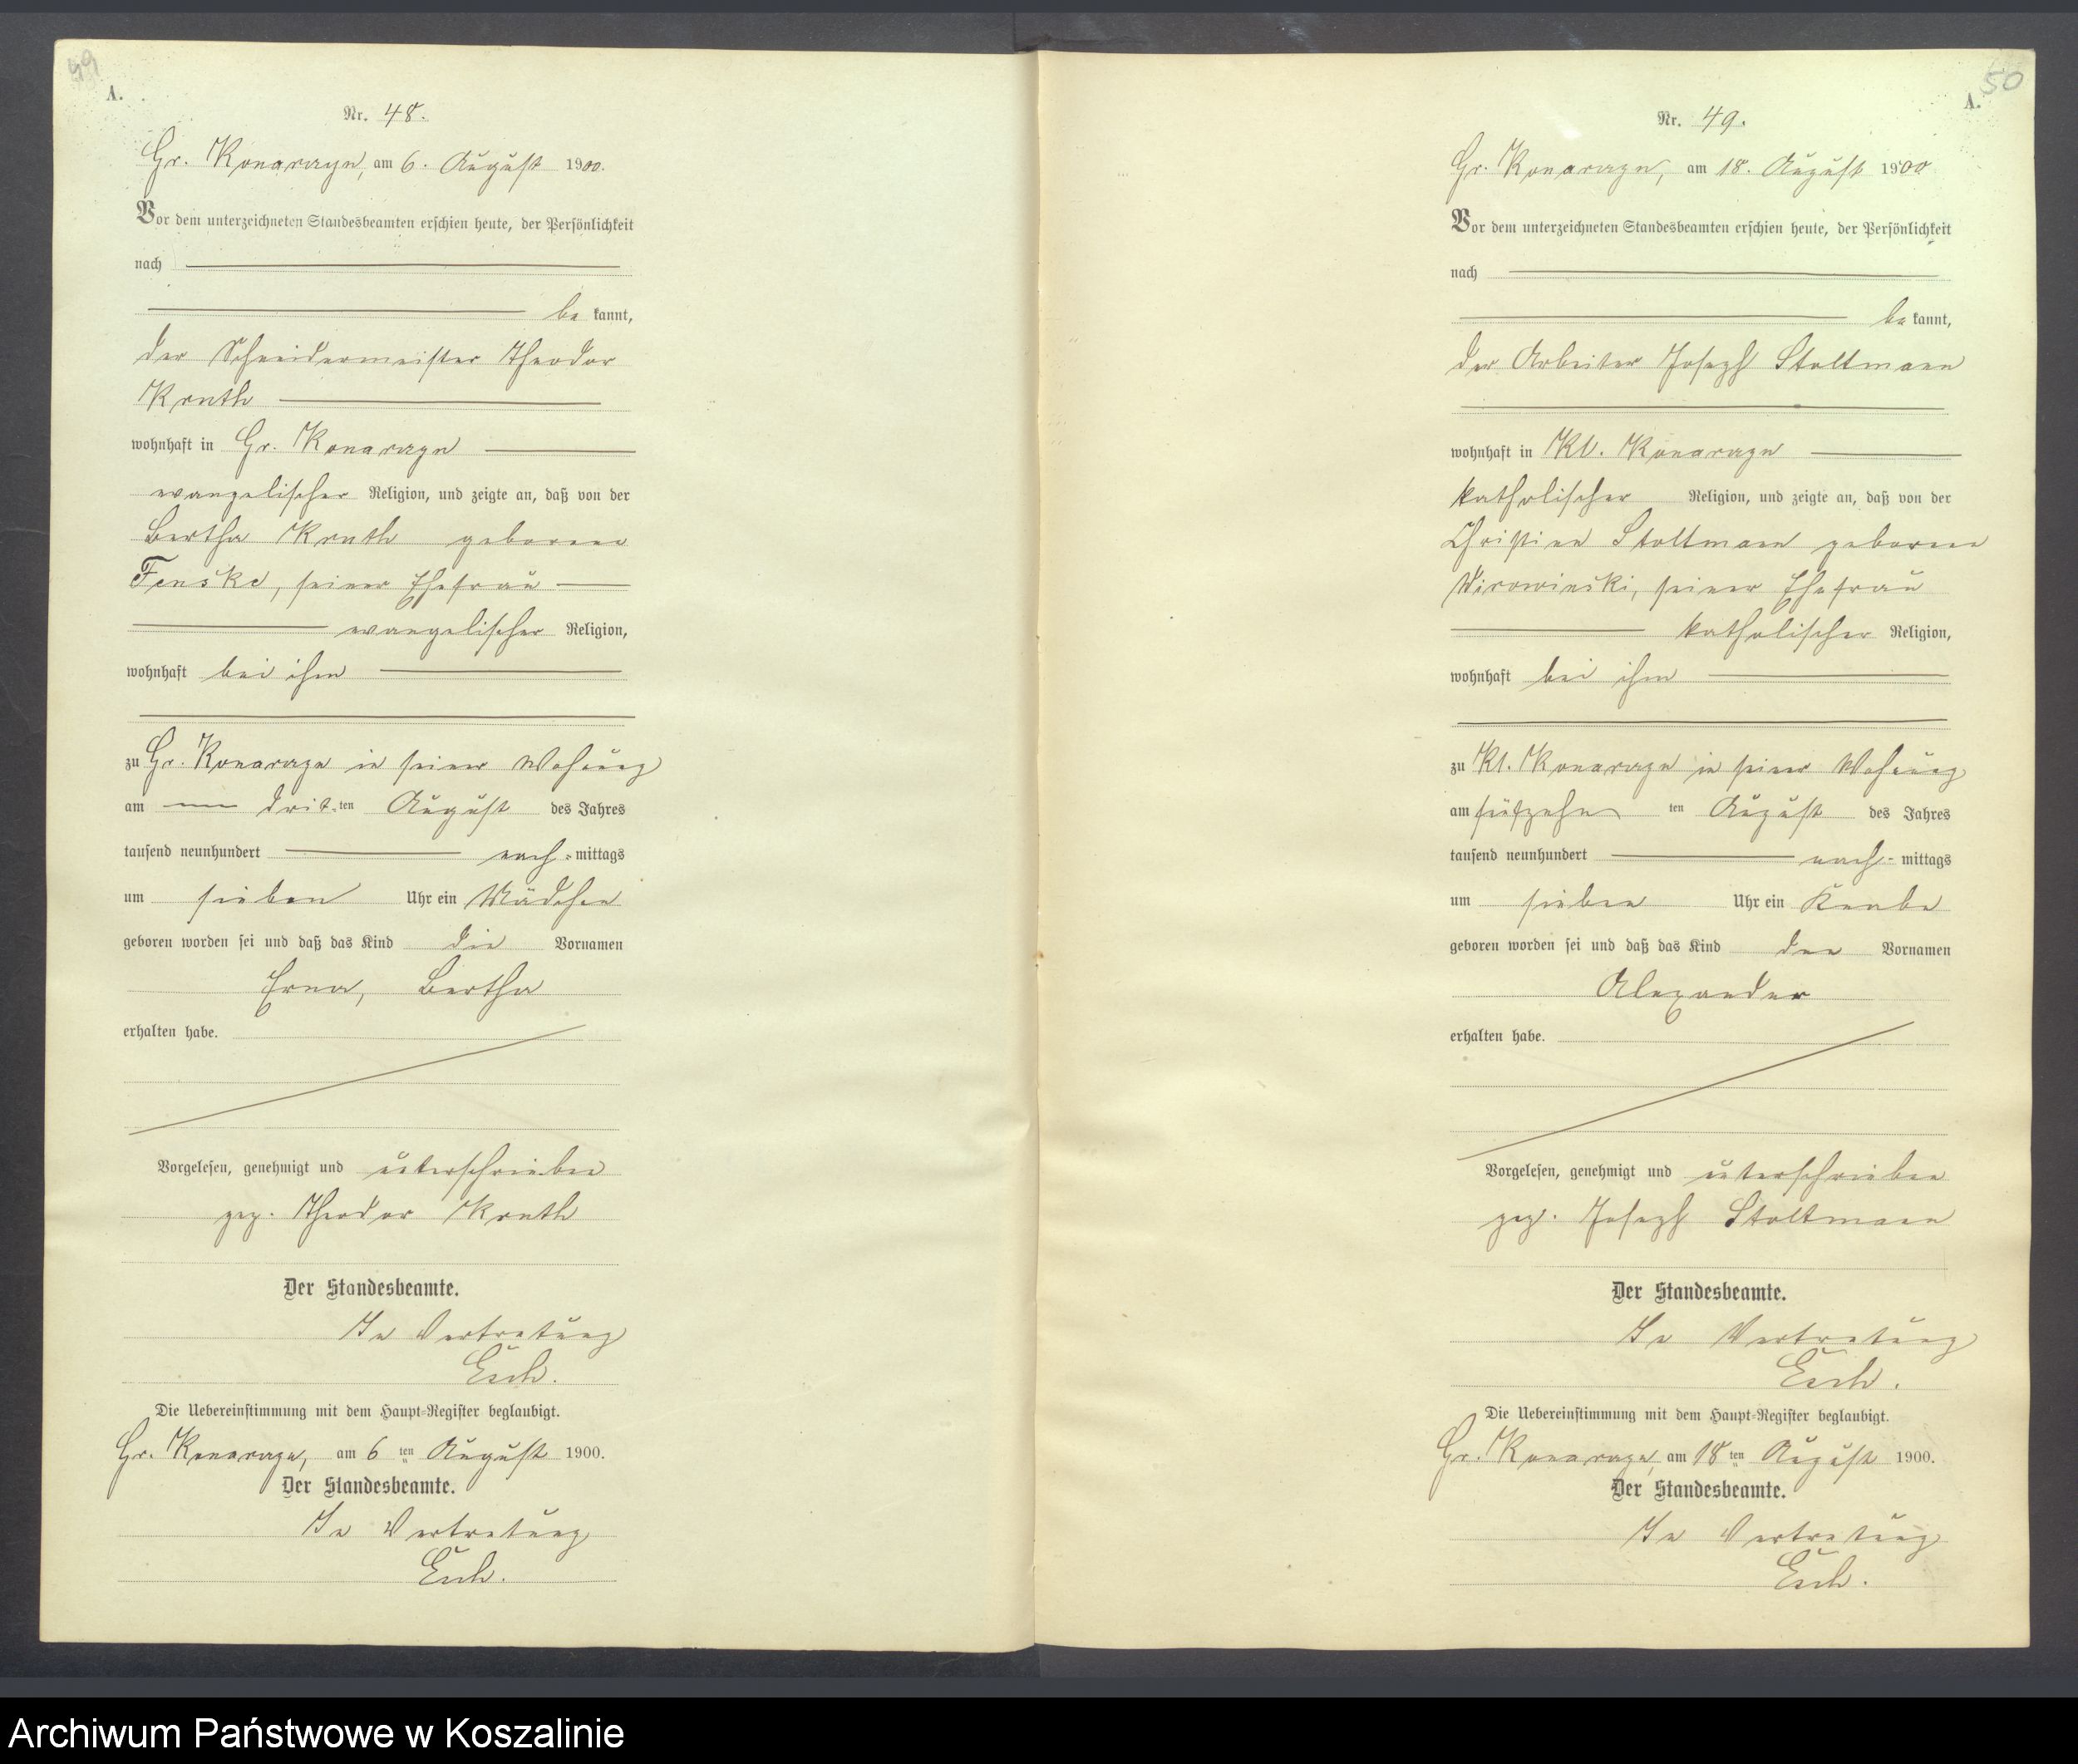 49
A.
Nr. 48.
Gr. Konarczyn, am 6. August 1900.
Vor dem unterzeichneten Standesbeamten erschien heute, der Persönlichkeit
nach
be kannt,
der Schneidermeister Theodor
Knuth
wohnhaft in Gr. Konarczyn
evangelischer Religion, und zeigte an, daß von der
Bertha Knuth geborene
Fenske, seiner Ehefrau
evangelischer Religion,
wohnhaft bei ihm
zu Gr. Konarczyn in seiner Wohnung
am drit-ten August des Jahres
tausend neunhundert nach-mittags
um sieben Uhr ein Mädchen
geboren worden sei und daß das Kind die Vornamen
Erna, Bertha
erhalten habe.
Vorgelesen, genehmigt und unterschrieben
gez. Theodor Knuth
Der Standesbeamte.
In Vertretung
Die Uebereinstimmung mit dem Haupt-Register beglaubigt.
Gr. Konarczyn, am 6 ten August 1900.
Der Standesbeamte.
In Vertretung
50
A.
Nr. 49.
Gr. Konarczyn, am 18. August 1900
Vor dem unterzeichneten Standesbeamten erschien heute, der Persönlichkeit
nach
be kannt,
der Arbeiter Joseph Stoltmann
wohnhaft in Kl. Konarczyn
katholischer Religion, und zeigte an, daß von der
Christine Stoltmann geborene
seiner Ehefrau
katholischer Religion,
wohnhaft bei ihm
zu Kl. Konarczyn in seiner Wohnung
am fünfzehn ten August des Jahres
tausend neunhundert nach-mittags
um sieben Uhr ein Knabe
geboren worden sei und daß das Kind den Vornamen
Alexander
erhalten habe.
Vorgelesen, genehmigt und unterschrieben
gez. Joseph Stoltmann
Der Standesbeamte.
In Vertretung
Die Uebereinstimmung mit dem Haupt-Register beglaubigt.
Gr. Konarczyn, am 18 ten August 1900.
Der Standesbeamte.
In Vertretung
Archiwum Państwowe w Koszalinie